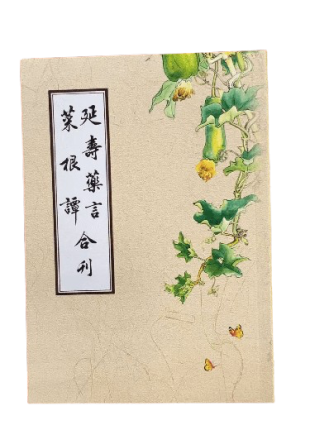 延壽藥言
菜根譚
合刊